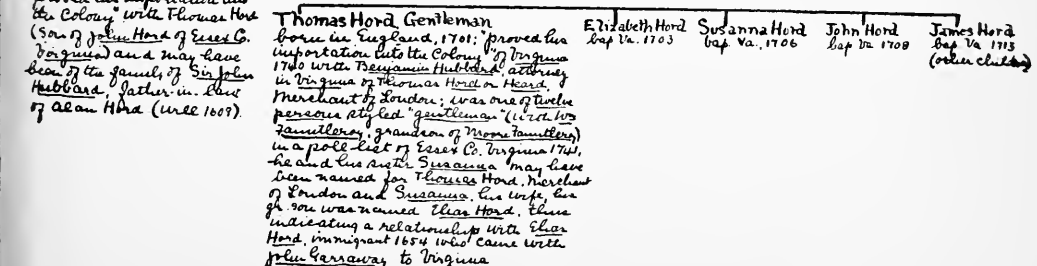 the Colony" with Thomas Hord
(son of John Hord of Essex Co.
Virginia) and may have
been of the family of Sir John
Hubbard, father-in-law
of Alan Hord (will 1609).
Thomas Hord Gentleman
born in England, 1701; "proved his
importation into the Colony" of Virginia
1740 with Benjamin Hubbard, attorney
in Virginia of Thomas Hord or Heard,
Merchant of London; was one of twelve
persons styled "gentleman" (with Wm
Fauntleroy, grandson of Moore Fauntleroy)
in a poll-list of Essex Co. Virginia 1741,
he and his sister Susanna may have
been named for Thomas Hord, Merchant
of London and Susanna, his wife, his
gr. son was named Elias Hord, thus
indicating a relationship with Elias
Hord, immigrant 1654 who came with
John Garraway to Virginia
Elizabeth Hord
bap Va. 1703
Susanna Hord
bap. Va. 1706
John Hord
bap Va 1708
James Hord
bap Va. 1713
(other children)